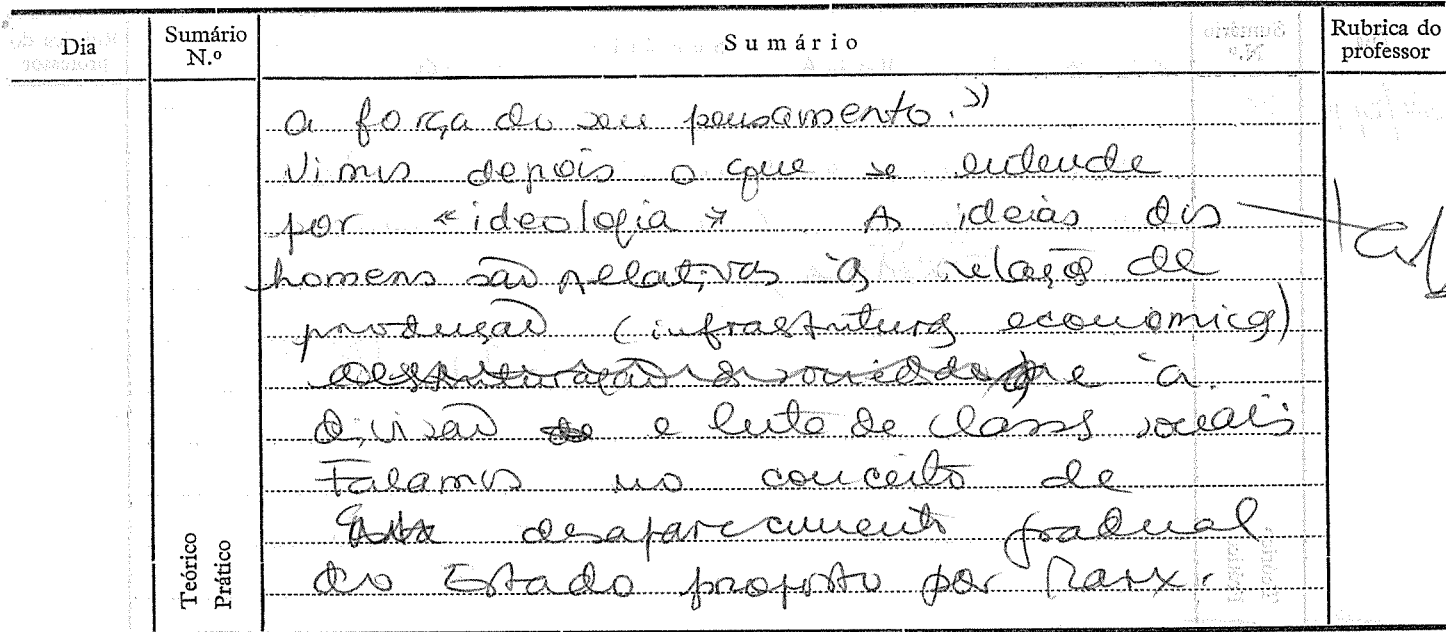 Dia
Sumário N.º
Sumário
Rubrica do professor
a força do seu pensamento.»
Vimos depois o que se entende
por «ideologia». As ideias dos
homens são relativas às relação de
produção (infraestrutura económica)
e à
divisão e luta de classes sociais
Falamos no conceito de
desaparecimento gradual
do Estado proposto por Marx.
Teórico
Prático